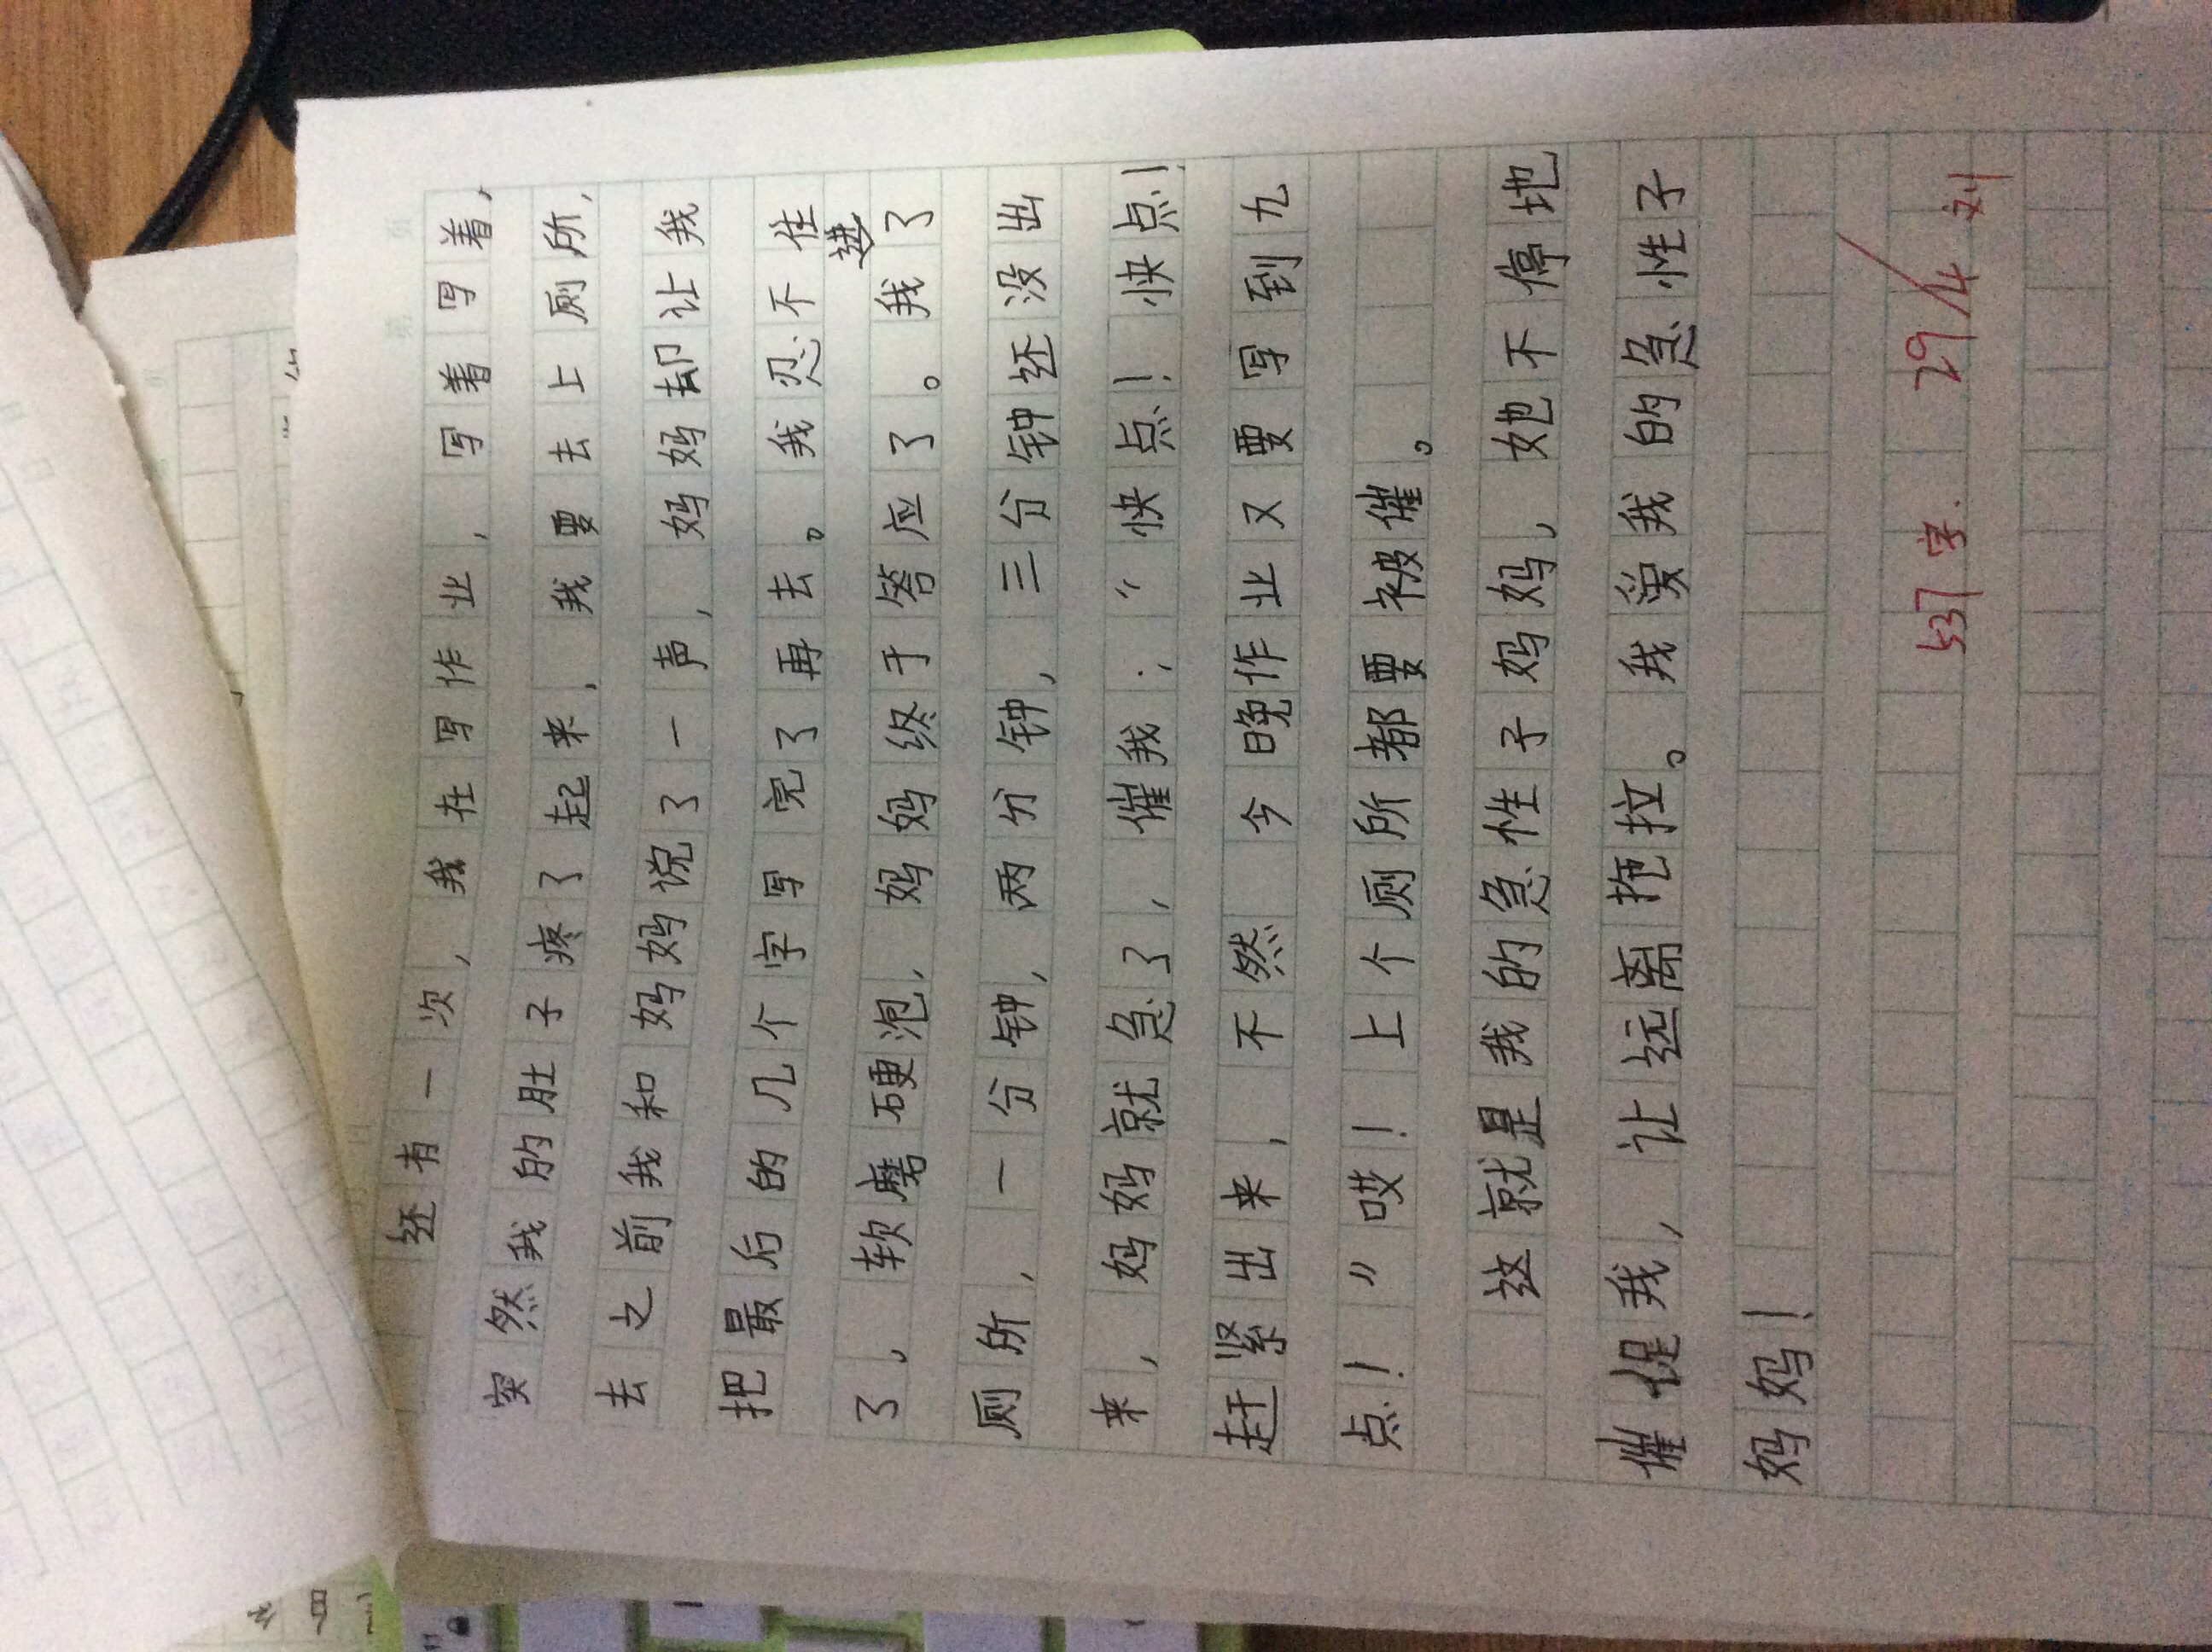 还有一次，我在写作业，写着写着，
突然我的肚子疼了起来，我要去上厕所，
去之前我和妈妈说了一声，妈妈却让我
把最后的几个字写完了再去。我忍不住
了，软磨硬泡，妈妈终于答应了。我进了
厕所，一分钟，两分钟，三分钟还没出
来，妈妈就急了，催我：“快点！快点！
赶紧出来，不然今晚作业又要写到九
点！”哎！上个厕所都要被催。
这就是我的急性子妈妈，她不停地
催促我，让远离拖拉。我爱我的急性子
妈妈！
537字. 29/4 刘